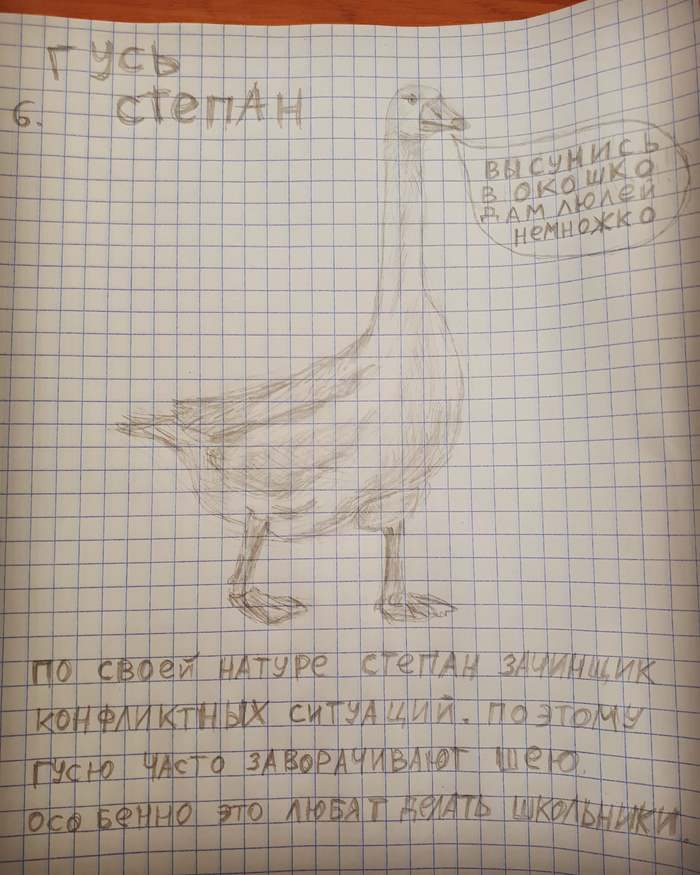 ГУСЬ
6. СТЕПАН
ВЫСУНИСЬ
В ОКОШКО
ДАМ ЛЮЛЕЙ
НЕМНОЖКО
ПО СВОЕЙ НАТУРЕ СТЕПАН ЗАЧИНЩИК
КОНФЛИКТНЫХ СИТУАЦИЙ. ПОЭТОМУ
ГУСЮ ЧАСТО ЗАВОРАЧИВАЮТ ШЕЮ.
ОСОБЕННО ЭТО ЛЮБЯТ ДЕЛАТЬ ШКОЛЬНИКИ.